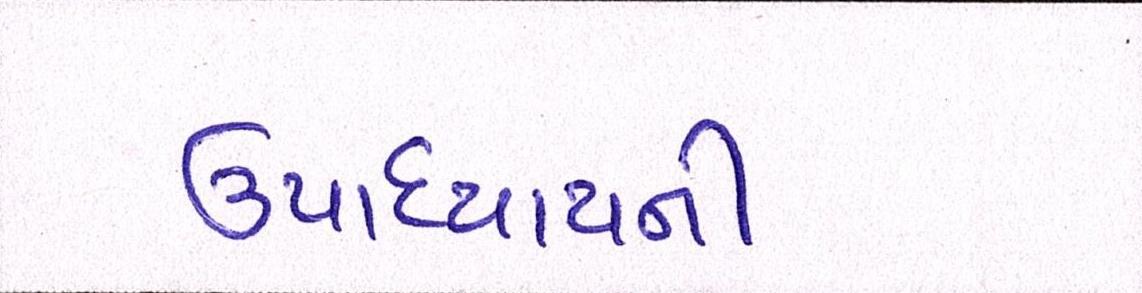 ઉપાધ્યાયની